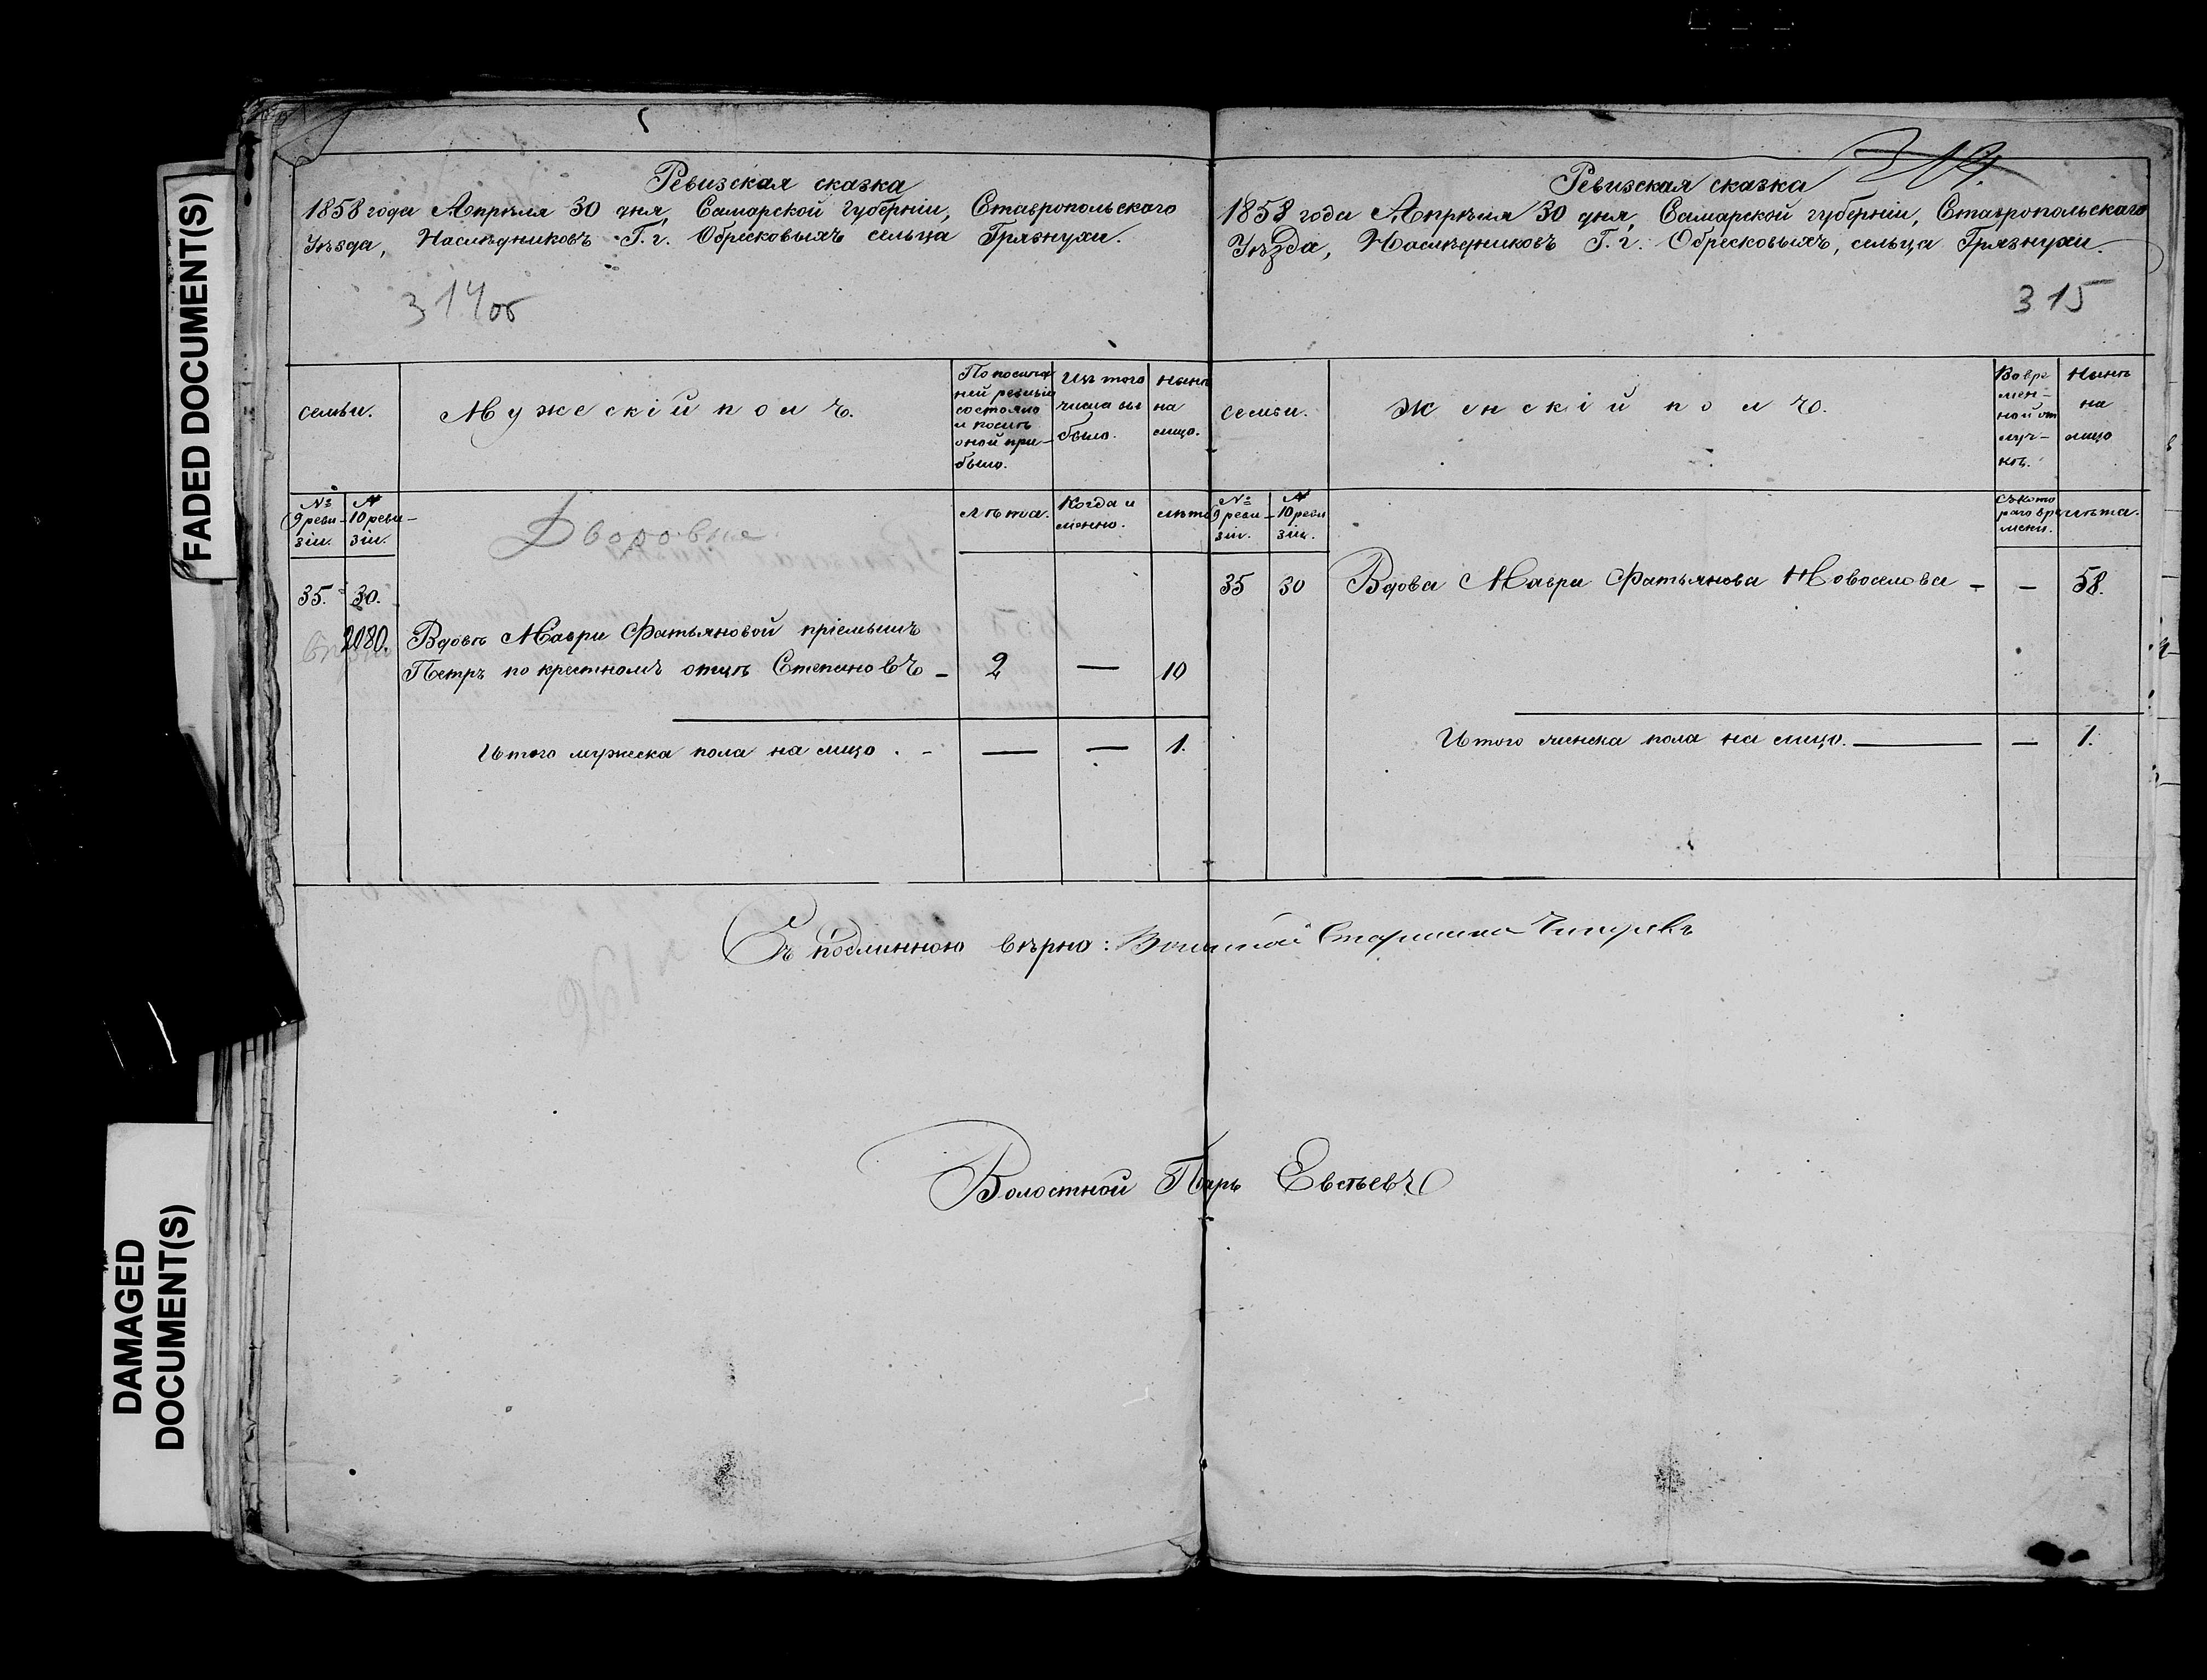 FADED DOCUMENT(S)
DAMAGED
DOCUMENT(S)
Ревизская сказка
1858 года Апрѣля 30 дня, Самарской губерніи, Ставропольскаго
Уѣзда, Наслѣдниковъ Г. г. Обресковыхъ сельца Грязнухи.
314 об
семьи.
Мужескій полъ.
По послѣд
ней ревизіи
состояло
и послѣ
оной при-
было.
Изъ того
числа вы
было.
Нынѣ
на
лицо.
№ 9 реви-
зіи.
№ 10 реви-
зіи.
Дворовые
Лѣта.
Когда и
менно.
лѣта
35. 30.
2080. Вдовы Мавры Фатьяновой пріемышъ
Петръ по крестномъ отцѣ Степановъ - 2 — 10
Итого мужеска пола на лицо . - — — 1.
Ревизская сказка
1858 года Апрѣля 30 дня, Самарской губерніи, Ставропольскаго
Уѣзда, Наслѣдниковъ Г. г. Обресковыхъ, сельца Грязнухи.
315
семьи.
Женскій полъ.
Во вре
мен-
ной от
луч-
кѣ.
Нынѣ
на
лицо
№ 9 реви-
зіи.
№ 10 реви
зіи.
Съ кото
раго вре
мени.
лѣта.
35 30 Вдова Мавра Фатьянова Новоселова - — 58.
Итого женска пола на лицо. — — 1.
Съ подлинною вѣрно: Волостной Старшина
Волостной Писарь Евсѣевъ